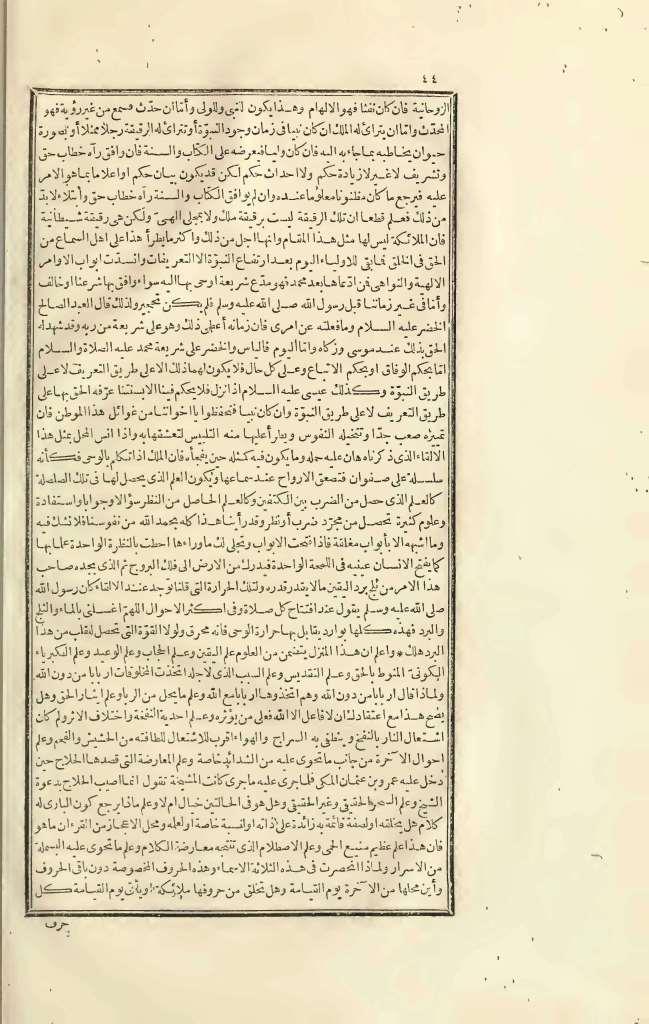 ٤٤
الروحانية فان كان نفثا فهو الالهام وهذا يكون للنبي وللولي وأما ان حدّث وسمع من غير رؤية فهو
المحدّث واما ان يتراءى له الملك ان كان نبيا في زمان وجود النبوّة أو تتراءى له الرقيقة رجلا ممثلا أو بصورة
حيوان يخاطبه بما جاء به اليه فان كان وليا فيعرضه على الكتاب والسنة فان وافق رآه خطاب حق
وتشريف لا غير لا زيادة حكم ولا احداث حكم لكن قد يكون بيان حكم او اعلاما بما هو الامر
عليه فيرجع ما كان مظنونا معلوما عنده وان لم يوافق الكتاب والسنة رآه خطاب حق وابتلاء لا بد
من ذلك فعلم قطعا ان تلك الرقيقة ليست برقيقة ملك ولا بمجلى الهي ولكن هي رقيقة شيطانية
فان الملائكة ليس لها مثل هذا المقام وانها اجل من ذلك واكثر ما يطرأ هذا على اهل السماع من
الحق في الخلق فما بقي للاولياء اليوم بعد ارتفاع النبوّة الا التعريفات وانسدّت ابواب الاوامر
الالهية والنواهي فمن ادّعاها بعد محمد فهو مدّع شريعة اوحي بها اليه سواء وافق بها شرعنا او خالف
وأما في غير زماننا قبل رسول الله صلى الله عليه وسلم فلم يكن تحجير ولذلك قال العبد الصالح
الخضر عليه السلام وما فعلته عن امرى فان زمانه أعطى ذلك وهو على شريعة من ربه وقد شهد له
الحق بذلك عند موسى وزكاه واما اليوم فالياس والخضر على شريعة محمد عليه الصلاة والسلام
اما بحكم الوفاق او بحكم الاتباع وعلى كل حال فلا يكون لهما ذلك الا على طريق التعريف لا على
طريق النبوّة وكذلك عيسى عليه السلام اذا نزل فلا يحكم فينا الا بسنتنا عرّفه الحق بها على
طريق التعريف لا على طريق النبوّة وان كان نبيا فتحفظوا يا اخواننا من غوائل هذا الموطن فان
تمييزه صعب جدّا وتستحيله النفوس ويطرأ عليها منه التلبيس لتعشقها به واذا انس المحل بمثل هذا
الالقاء الذي ذكرناه هان عليه حمله وما يكون فيه كمثله حين يفجأه فان الملك اذا تكلم بالوحي فكأنه
سلسلة على صفوان فتصعق الارواح عند سماعها ويكون العلم الذي يحصل لها في تلك الصلصلة
كالعلم الذي حصل من الضرب بين الكتفين وكالعلم الحاصل من النظر سؤالا وجوابا واستفادة
وعلوم كثيرة تحصل من مجرّد ضرب أو نظر وقد رأينا هذا كله بحمد الله من نفوسنا فلا نشك فيه
وما اشبهه الا بأبواب مغلقة فاذا فتحت الابواب وتجلى لك ما وراءها احطت بالنظرة الواحدة علما بها
كما يفتح الانسان عينيه في اللمحة الواحدة فيدرك من الارض الى فلك البروج ثم الذي يجده صاحب
هذا الامر من ثلج برد اليقين ما لا يقدر قدره ولتلك الحرارة التي قلنا توجد عند الالقاء كان رسول الله
صلى الله عليه وسلم يقول عند افتتاح كل صلاة وفي اكثر الاحوال اللهم اغسلني بالماء والثلج
والبرد فهذه كلها بوارد يقابل بها حرارة الوحي فانه محرق ولولا القوّة التي تحصل للقلب من هذا
البرد هلك * واعلم ان هذا المنزل يتضمن من العلوم علم اليقين وعلم الحجاب وعلم الوعيد وعلم الكبرياء
الكونيّ المنوط بالحق وعلم التقديس وعلم السبب الذي لاجله اتخذت المخلوقات اربابا من دون الله
ولماذا قال اربابا من دون الله وهم اتخذوها اربابا مع الله وعلم ما يحل من الربا وعلم ايثار الحق وهل
يصح هذا مع اعتقادك ان لا فاعل الا الله فعلى من يؤثره وعلم احدية النفخة واختلاف الاثر ولم كان
اشتعال النار بالنفخ وينطفي به السراج والهواء اقرب للاشتعال للطافته من الحشيش والفحم وعلم
احوال الآخرة من جانب ما تحوى عليه من الشدائد خاصة وعلم المعارضة التي قصدها الحلاج حين
دخل عليه عمرو بن عثمان المكي فلما جرى عليه ما جرى كانت المشيخة تقول انما اصيب الحلاج بدعوة
الشيخ وعلم السحر الحقيقي وغير الحقيقي وهل هو في الحالتين خيال ام لا وعلم ماذا يرجع كون البارى له
كلام هل يخلقه او لصفة قائمة به زائدة على ذاته او لنسبة خاصة او لعلمه ومحل الاعجاز من القرءان ما هو
فان هذا علم عظيم منيع الحمى وعلم الاصطلام الذي تنتجه معارضة الكلام وعلم ما تحوى عليه البسملة
من الاسرار ولماذا انحصرت في هذه الثلاثة الاسماء وهذه الحروف المخصوصة دون باقي الحروف
وأين محلها من الآخرة يوم القيامة وهل تخلق من حروفها ملائكة ويأتي يوم القيامة كل
حرف